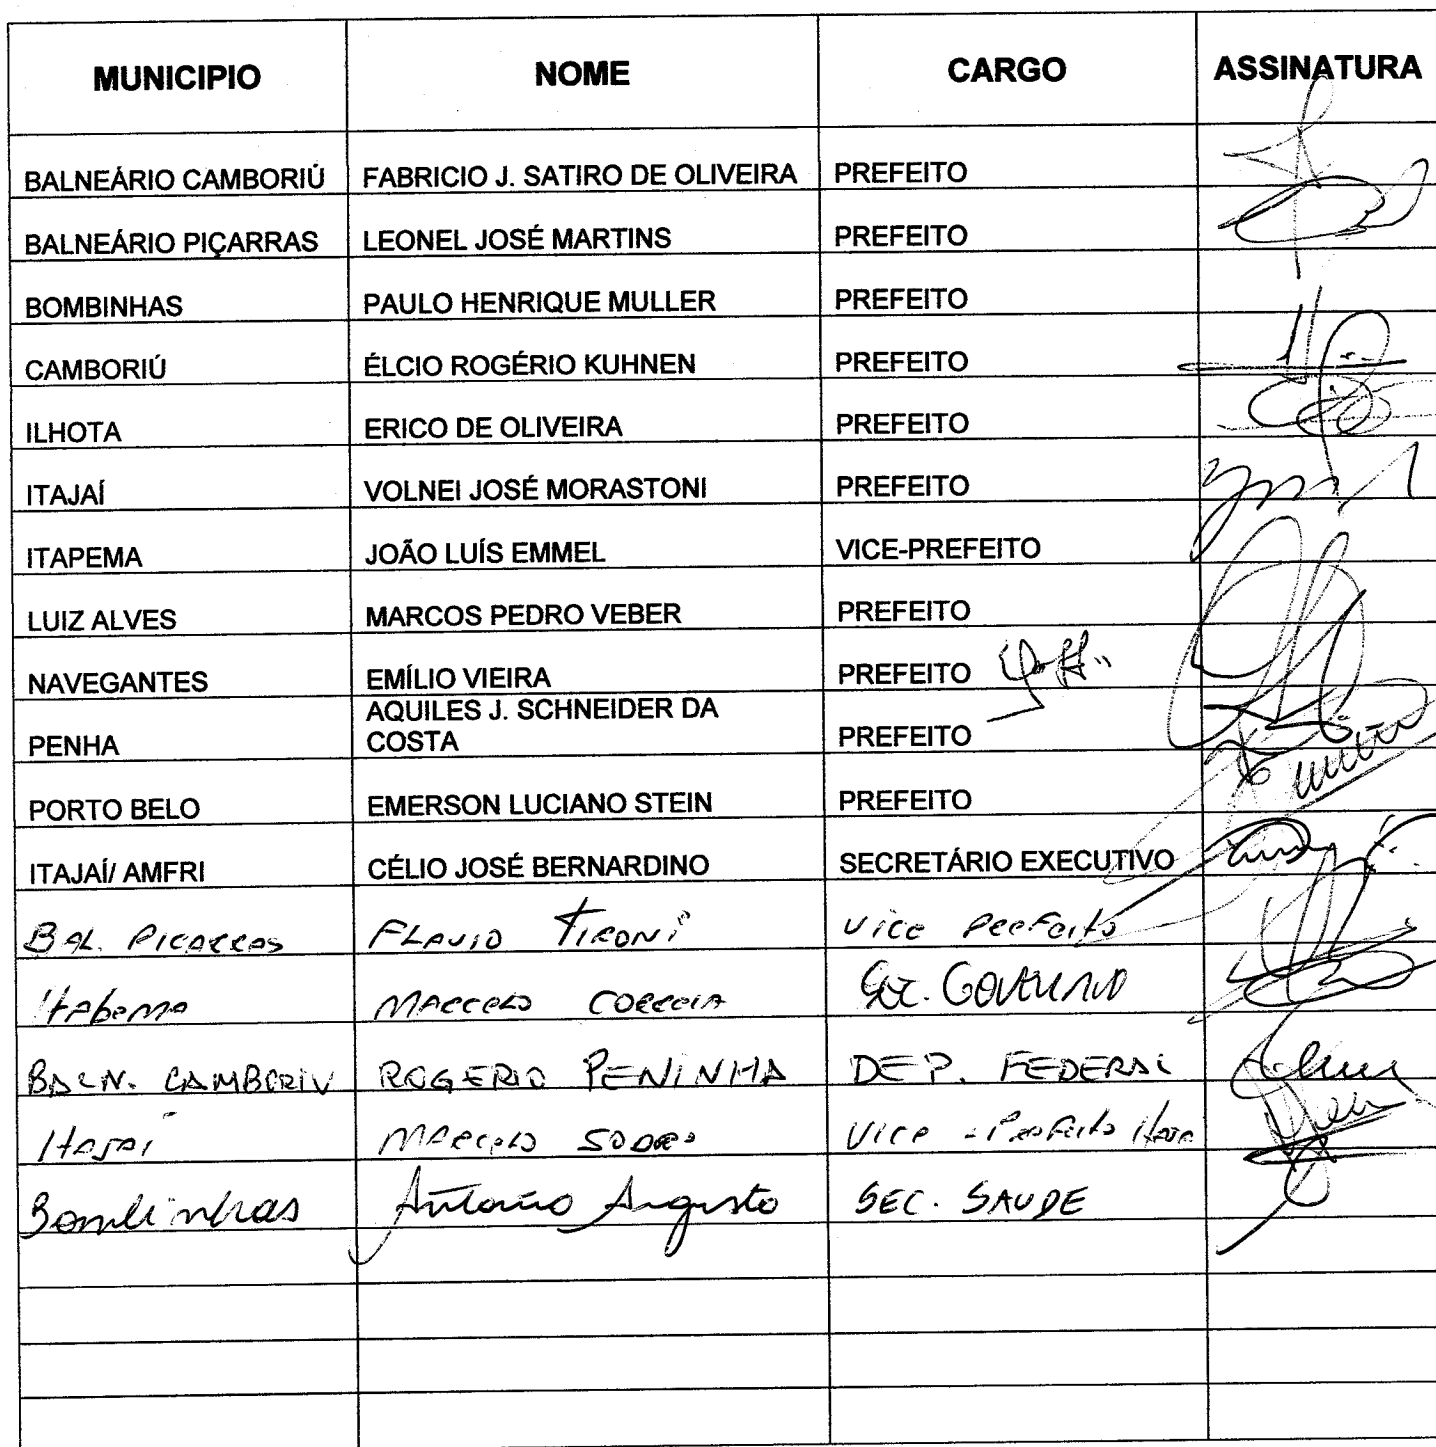 MUNICIPIO NOME CARGO ASSINATURA
BALNEÁRIO CAMBORIÚ FABRICIO J. SATIRO DE OLIVEIRA PREFEITO
BALNEÁRIO PIÇARRAS LEONEL JOSÉ MARTINS PREFEITO
BOMBINHAS PAULO HENRIQUE MULLER PREFEITO
CAMBORIÚ ÉLCIO ROGÉRIO KUHNEN PREFEITO
ILHOTA ERICO DE OLIVEIRA PREFEITO
ITAJAÍ VOLNEI JOSÉ MORASTONI PREFEITO
ITAPEMA JOÃO LUÍS EMMEL VICE-PREFEITO
LUIZ ALVES MARCOS PEDRO VEBER PREFEITO
NAVEGANTES EMÍLIO VIEIRA PREFEITO
PENHA AQUILES J. SCHNEIDER DA
COSTA PREFEITO
PORTO BELO EMERSON LUCIANO STEIN PREFEITO
ITAJAÍ/ AMFRI CÉLIO JOSÉ BERNARDINO SECRETÁRIO EXECUTIVO
BAL. PICARRAS FLAVIO TIRONI VICE PREFEITO
ITAPEMA MARCELO CORREIA SEC. GOVERNO
BALN. CAMBORIU ROGERIO PENINHA DEP. FEDERAL
ITAJAÍ MARCELO SODRÉ VICE-PREFEITO
Bombinhas Antonio Augusto SEC. SAUDE